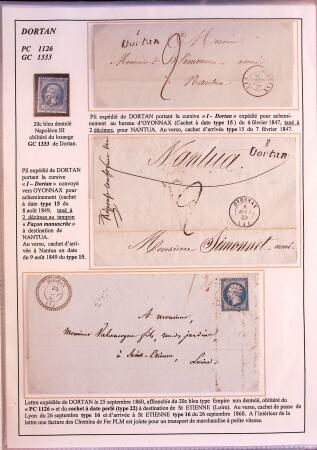 DORTAN
PC 1126
GC 1333
20c bleu dentelé
Napoléon III
oblitéré du losange
GC 1333 de Dortan.
1
Dortan
Monsieur
Monsieur Simonnet
Nantua
Pli expédié de DORTAN portant la cursive « I – Dortan » expédié pour achemi-
nement au bureau d'OYONNAX (Cachet à date type 15 ) du 6 février 1847, taxé à
2 décimes, pour NANTUA. Au verso, cachet d'arrivée type 15 du 7 février 1847.
Pli expédié de DORTAN
portant la cursive
« I – Dortan » convoyé
vers OYONNAX pour
acheminement (cachet
à date type 15 du
8 août 1849, taxé à
2 décimes au tampon
« Façon manuscrite »
à destination de
NANTUA.
Au verso, cachet d'arri-
vée à Nantua en date
du 9 août 1849 du type 15.
Nantua
Dortan
OYONNAX
Monsieur Simonnet
A Monsieur
Monsieur
à Saint-Etienne
Loire
Lettre expédiée de DORTAN le 25 septembre 1860, affranchie du 20c bleu type Empire non dentelé, oblitéré du
« PC 1126 » et du cachet à date perlé (type 22) à destination de St ETIENNE (Loire). Au verso, cachet de passe de
Lyon du 26 septembre type 16 et d'arrivée à St ETIENNE type 16 du 26 septembre 1860. A l'intérieur de la
lettre une facture des Chemins de Fer PLM est jointe pour un transport de marchandise à petite vitesse.